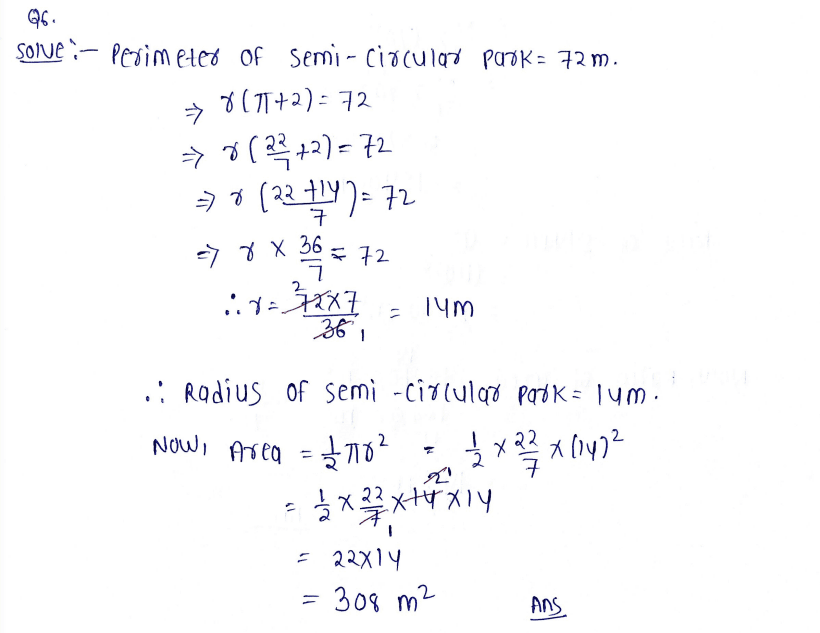 Q6.
Solve :- Perimeter of semi-circular park = 72m.
⇒ r(π+2) = 72
⇒ r(22/7 +2) = 72
⇒ r (22+14/7) = 72
⇒ r × 36/7 = 72
∴ r = 72×7/36 2 1 = 14m
∴ Radius of semi-circular park = 14m.
Now, Area = 1/2 πr² = 1/2 × 22/7 × (14)²
= 1/2 × 22/7 × 14 × 14 2 1 1
= 22×14
= 308 m² Ans